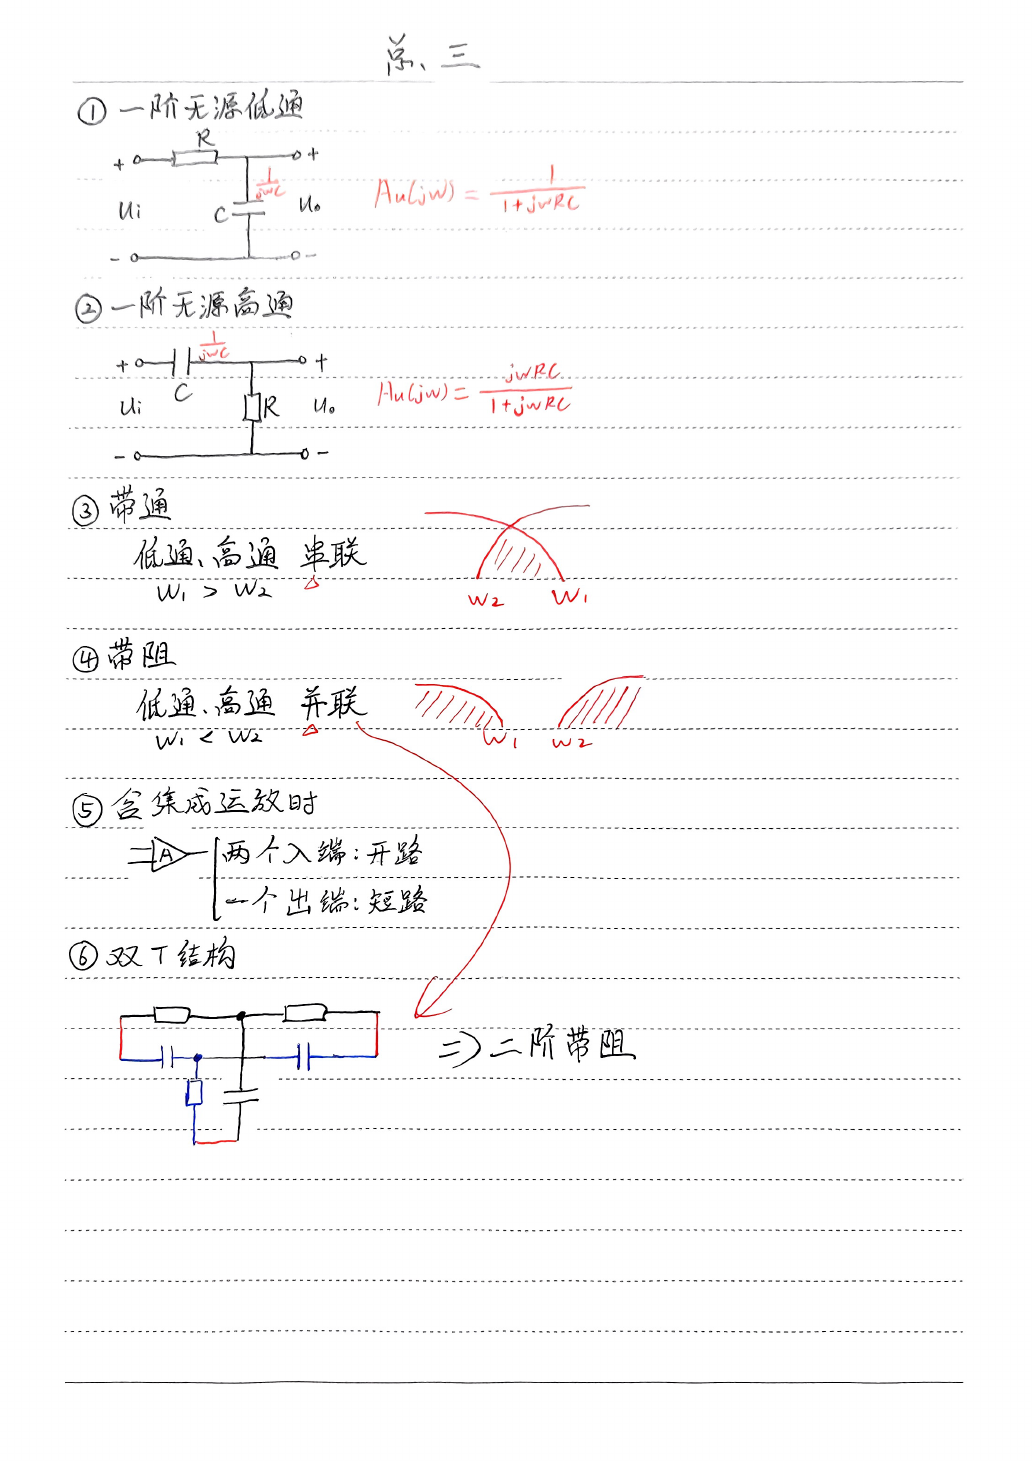 总、三
① 一阶无源低通
R
+ +
1/jwC
Ui C Uo Au(jw) = 1/(1+jwRC)
- -
② 一阶无源高通
1/jwC
+ +
C
Ui R Uo Au(jw) = jwRC/(1+jwRC)
- -
③ 带通
低通、高通 串联
W1 > W2 △
W2 W1
④ 带阻
低通、高通 并联
W1 < W2 △
W1 W2
⑤ 含集成运放时
A 两个入端：开路
一个出端：短路
⑥ 双T结构
=> 二阶带阻